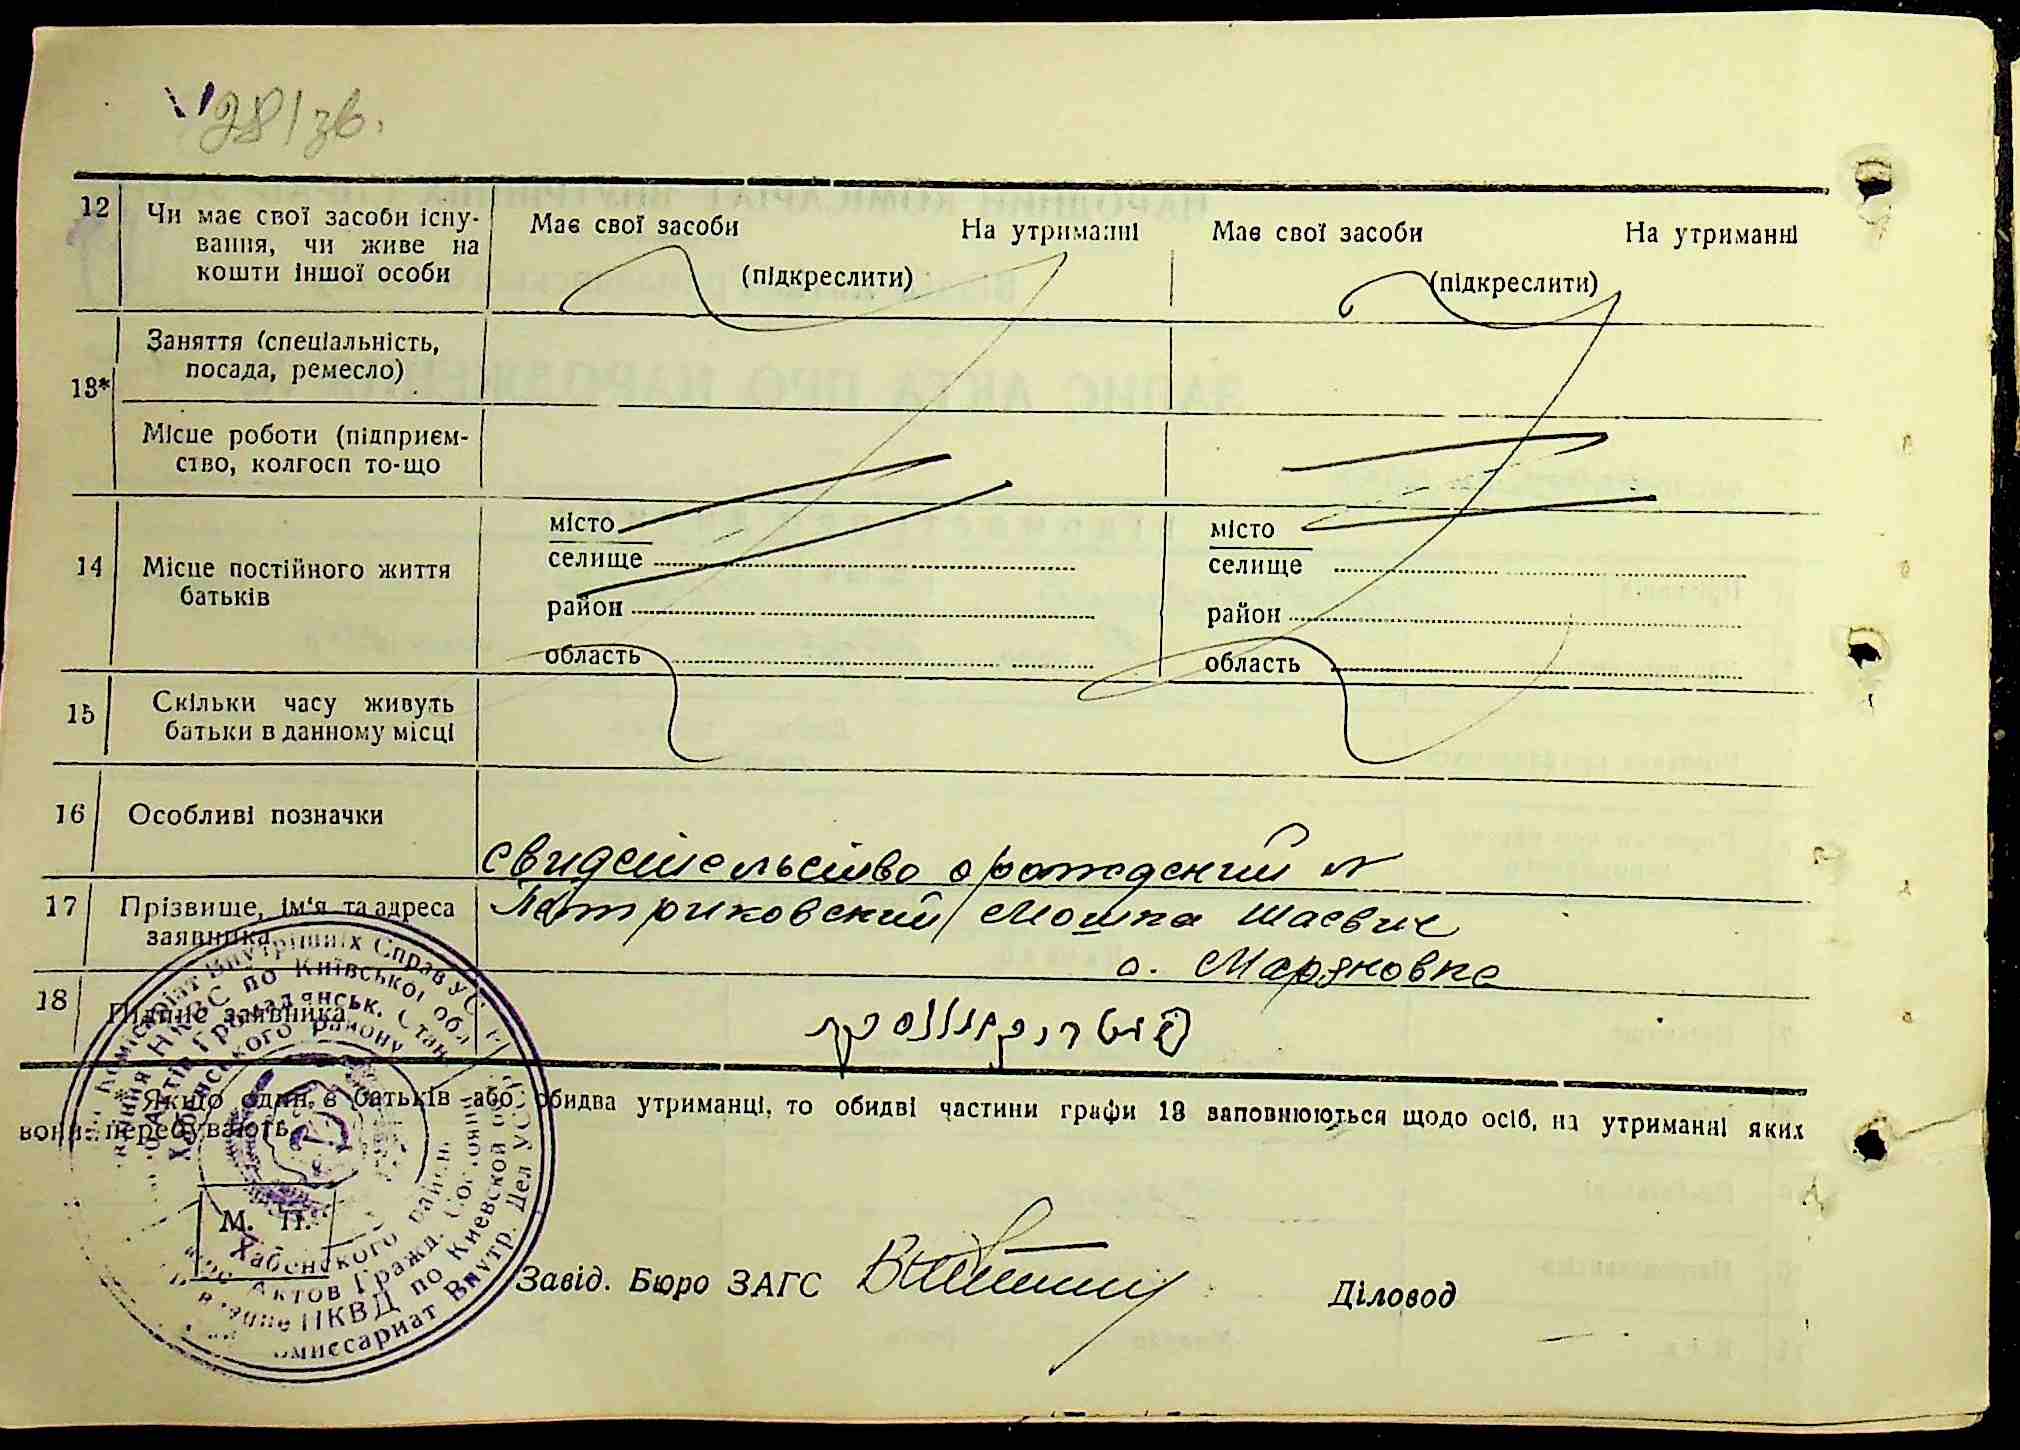 28/зв.
12 Чи має свої засоби існу-
вання, чи живе на
кошти іншої особи
Має свої засоби На утриманні
(підкреслити)
Має свої засоби На утриманні
(підкреслити)
13* Заняття (спеціальність,
посада, ремесло)
Місце роботи (підприєм-
ство, колгосп то-що
14 Місце постійного життя
батьків
місто
селище
район
область
місто
селище
район
область
15 Скільки часу живуть
батьки в данному місці
16 Особливі позначки
свидетельство о рождении №
17 Прізвище, ім'я та адреса
заявника
Патриковский Мошка Шаевич
с. Маряновка
18 Підпис заявника
* Якщо один з батьків або обидва утриманці, то обидві частини графи 13 заповнюються щодо осіб, на утриманні яких
вони перебувають.
М. П.
Завід. Бюро ЗАГС
Діловод
Комісаріат Внутрішніх Справ УС
НКВС по Київській обл
Актів Громадянськ. Стан
Хабенського району
Хабенского района
Актов Гражд. Состояни
НКВД по Киевской об
омиссариат Внутр. Дел УССР